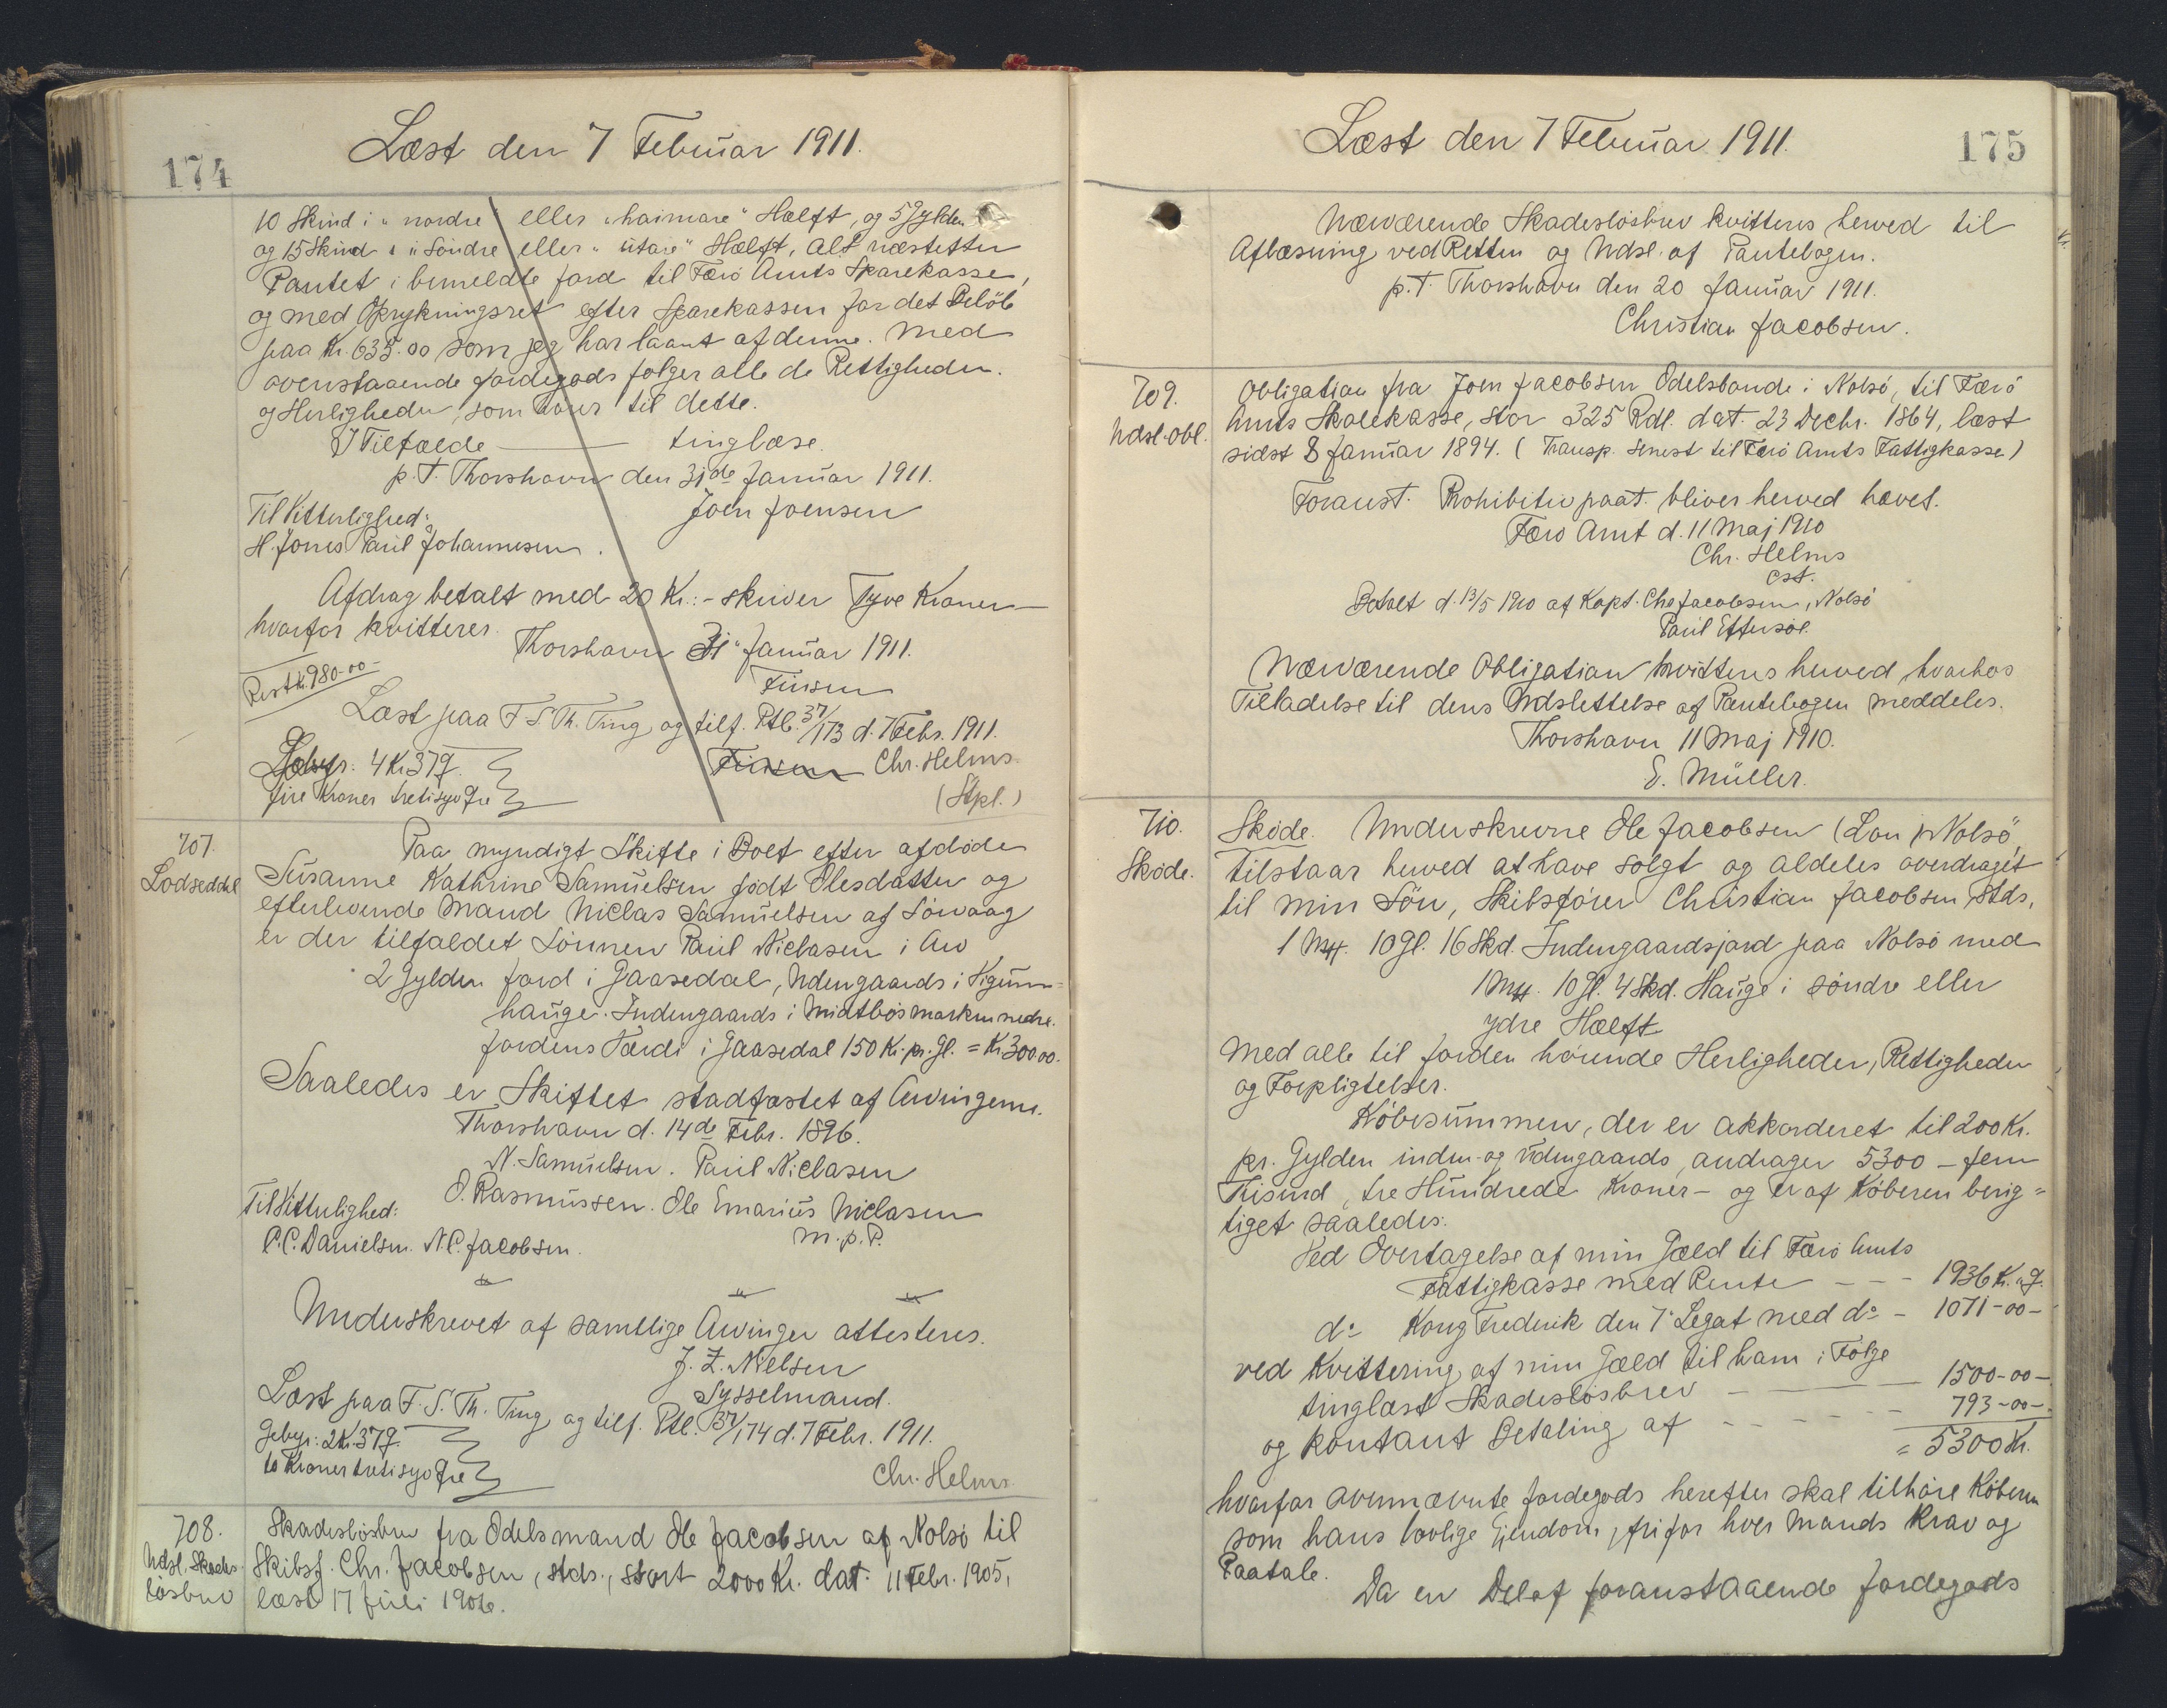 174
Læst den 7 Februar 1911.
10 Skind i "nordre" eller "haimare" Hælft, og 5 Gylden
og 15 Skind i "Söndre" eller "utare" Hælft, alt næstefter
Pantet i bemeldte Jord til Færö Amts Sparekasse,
og med Oprykningsret efter Sparekassen for det Belöb
paa Kr. 635.00 som jeg har laant af denne. Med
ovenstaaende Jordegods følger alle de Rettigheder
og Herligheder, som hører til dette.
I Tilfælde — tinglæse.
p.T. Thorshavn den 31de Januar 1911.
Til Vitterlighed: Joen Joensen
H. Jones Paul Johannesen.
Afdrag betalt med 20 Kr.:- skriver Tyve Kroner —
hvorfor kvitteres.
Thorshavn 31" Januar 1911.
Rest Kr. 980-00-
Finsen
Læst paa F. S. Th. Ting og tilf. Ptb. 37/173 d. 7 Febr. 1911.
Gebyr: 4 Kr 37 Ø. Finsen Chr. Helms
fire Kroner tretisyv Øre (Stpl.)
707.
Lodseddel
Paa myndigt Skifte i Boet efter afdöde
Susanne Kathrine Samuelsen født Olesdatter og
efterlevende Mand Niclas Samuelsen af Sörvaag
er der tilfaldet Sönnen Paul Niclasen i Arv
2 Gylden Jord i Gaasedal, Udengaards i Kigum=
hauge. Indengaards i Midtbösmarken nedre.
Jordens Værdi i Gaasedal 150 Kr. pr. Gl. = Kr. 300 00.
Saaledes er Skiftet stadfæstet af Arvingerne.
Thorshavn d. 14de Febr. 1896.
N. Samuelsen. Paul Niclasen
Til Vitterlighed: O. Rasmussen. Ole Emarius Niclasen
P.C. Danielsen. N.C. Jacobsen. m.p.P.
Underskrevet af samtlige Arvinger attesteres.
J. Z. Nielsen
Sysselmand.
Læst paa F. S. Th. Ting og tilf. Ptb. 37/174 d. 7 Febr. 1911.
Gebyr: 2 Kr. 37 Ø.
to Kroner tretisyv Øre
Chr. Helms
708.
Udsl. Skades-
lösbrev
Skadeslösbrev fra Odelsmand Ole Jacobsen af Nolsö til
Skibsf. Chr. Jacobsen, stds., stort 2000 Kr. dat. 11 Febr. 1905,
læst 17 Juli 1906.
175
Læst den 7 Februar 1911.
Nærværende Skadeslösbrev kvitteres herved til
Aflæsning ved Retten og Udsl. af Pantebogen.
p.T. Thorshavn den 20 Januar 1911.
Christian Jacobsen.
709.
Udsl. Obl.
Obligation fra Joen Jacobsen Odelsbonde i Nolsö, til Færö
Amts Skolekasse, stor 325 Rdl. dat. 23 Decbr. 1864, læst
sidst 8 Januar 1894. (Transp. senest til Færö Amts Fattigkasse)
Foranst. Prohibitivpaat. bliver herved hævet.
Færö Amt d. 11 Maj 1910
Chr. Helms
cst.
Betalt d. 13/5 1910 af Kapt. Chr Jacobsen, Nolsö
Paul Effersöe.
Nærværende Obligation kvitteres herved hvorhos
Tilladelse til dens Udslettelse af Pantebogen meddeles.
Thorshavn 11 Maj 1910.
E. Müller.
710.
Sköde.
Sköde. Underskrevne Ole Jacobsen (Lon) Nolsö,
tilstaar herved at have solgt og aldeles overdraget
til min Sön, Skibsförer Christian Jacobsen Stds.
1 Mrk. 10 Gl. 16 Skd. Indengaardsjord paa Nolsö med
1 Mrk. 10 Gl. 4 Skd. Hauge i söndre eller
ydre Hælft
Med alle til Jorden hörende Herligheder, Rettigheder
og Forpligtelser.
Köbesummen, der er akkorderet til 200 Kr.
pr. Gylden inden- og Udengaards andrager 5300 - fem
Tusind, tre Hundrede Kroner - og er af Köberen berig=
tiget saaledes:
Ved Overtagelse af min Gæld til Færö Amts
Fattigkasse med Rente - - - 1936 Kr. " Ø.
do Kong Frederik den 7' Legat med do - 1071-00-
ved Kvittering af min Gæld til ham i Følge
tinglæst Skadeslösbrev — 1500-00-
og kontant Betaling af - - - - - 793-00-
= 5300 Kr.
hvorfor ovennævnte Jordegods herefter skal tilhöre Köberen
som hans lovlige Ejendom, fri for hver Mands Krav og
Paatale.
Da en Del af foranstaaende Jordegods